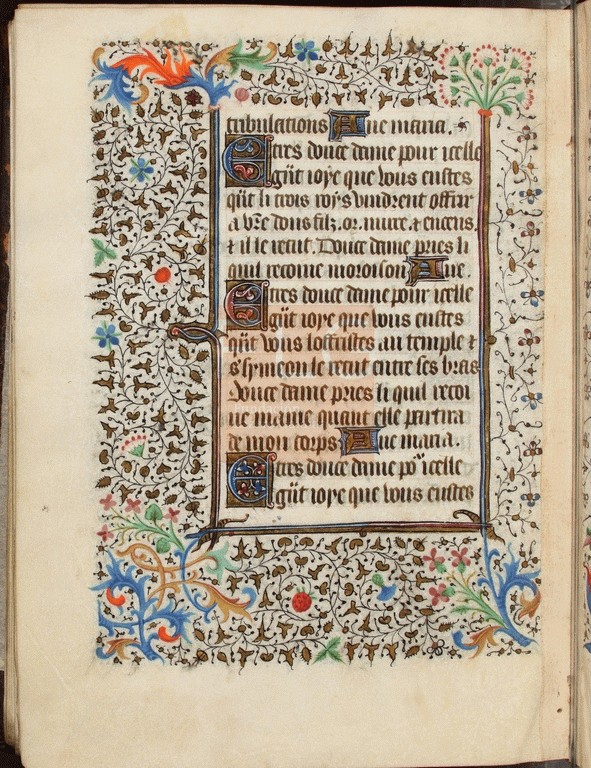 tribulations Aue maria.
Et tres douce dame pour icelle
grãt ioye que vous eustes
qũt li trois roys vindrent offrir
a vr̃e dous filz. or. mirre. ⁊ encens.
⁊ il le recut. Douce dame pries li
quil recoiue moroison Aue.
Et tres douce dame pour icelle
grãt ioye que vous eustes
qũt vous loffristes au temple ⁊
s' symeon le recut entre ses bras
douce dame pries li quil recoi
ue mame quant elle partira
de mon corps Aue maria.
Et tres douce dame po^r icelle
grãt ioye que vous eustes